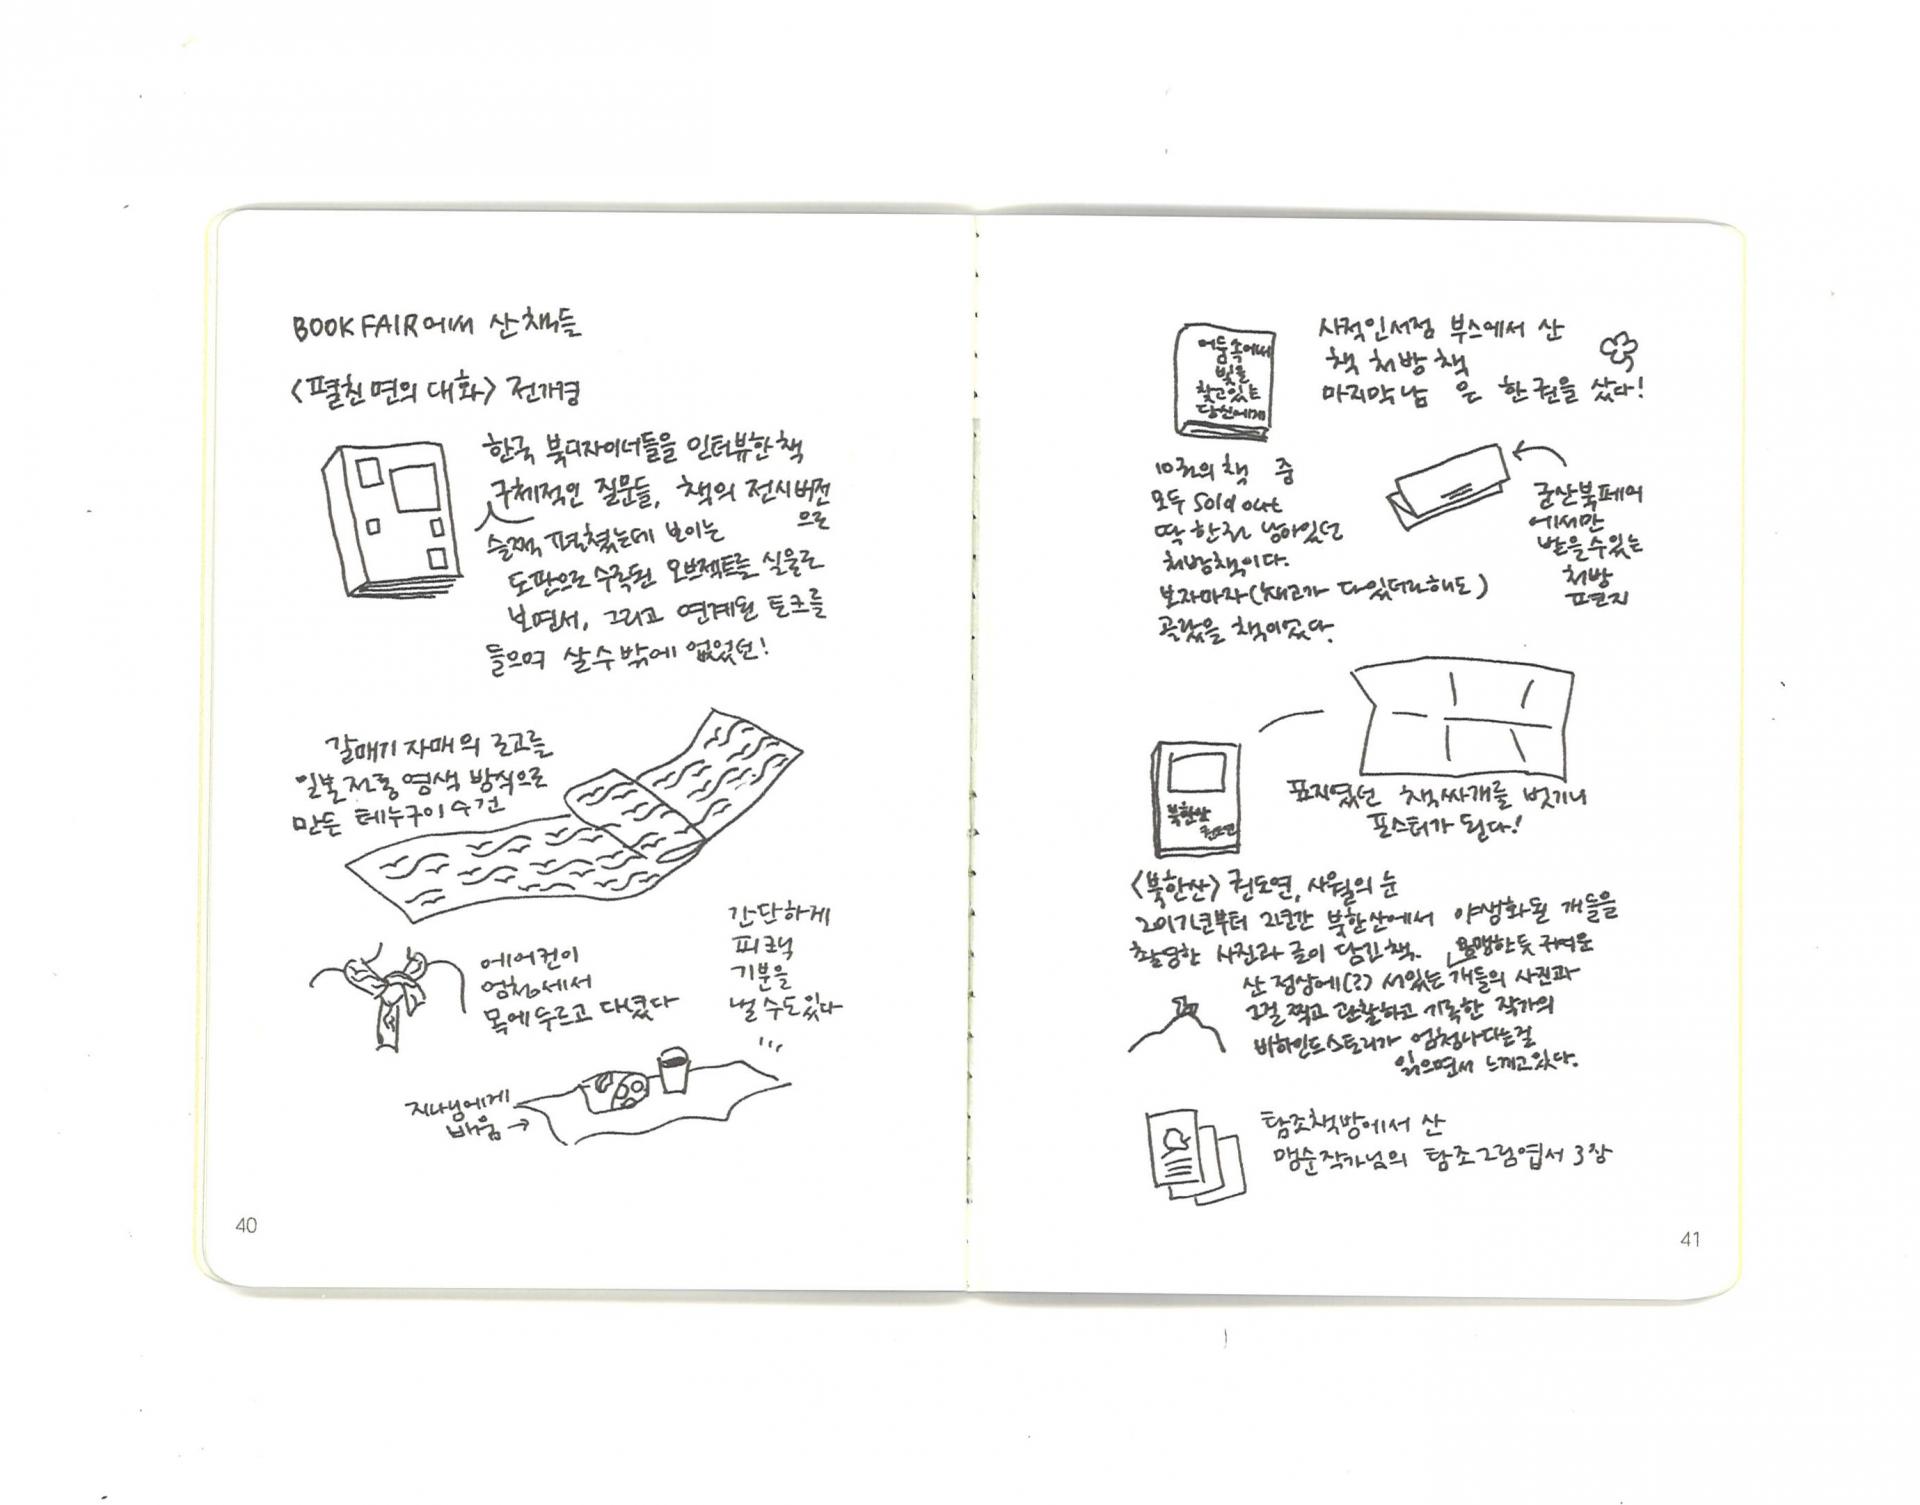 BOOK FAIR에서 산 책들
<펼친 면의 대화> 전가경
한국 북디자이너들을 인터뷰한 책
구체적인 질문들, 책의 전시버전
으로
슬쩍 펼쳤는데 보이는
도판으로 수록된 오브젝트를 실물로
보면서, 그리고 연계된 토크를
들으며 살 수 밖에 없었던!
갈매기 자매의 로고를
일본 전통 염색 방식으로
만든 테누구이 수건
에어컨이
엄청 세서
목에 두르고 다녔다
간단하게
피크닉
기분을
낼 수도 있다
지나님에게
배움 →
40
어둠속에서
빛을
찾고있는
당신에게
사적인서점 부스에서 산
책 처방 책
마지막 남은 한 권을 샀다!
10권의 책 중
모두 sold out
딱 한권 남아있던
처방책이다.
보자마자 (재고가 다 있더라해도)
골랐을 책이었다.
군산북페어
에서만
받을 수 있는
처방
편지
북한산
권도연
표지였던 책싸개를 벗기니
포스터가 된다!
<북한산> 권도연, 사월의 눈
2017년부터 2년간 북한산에서 야생화된 개들을
촬영한 사진과 글이 담긴 책.
용맹한듯 귀여운
산 정상에(?) 서있는 개들의 사진과
그걸 찍고 관찰하고 기록한 작가의
비하인드스토리가 엄청나다는걸
읽으면서 느끼고 있다.
탐조책방에서 산
맹순작가님의 탐조그림엽서 3장
41